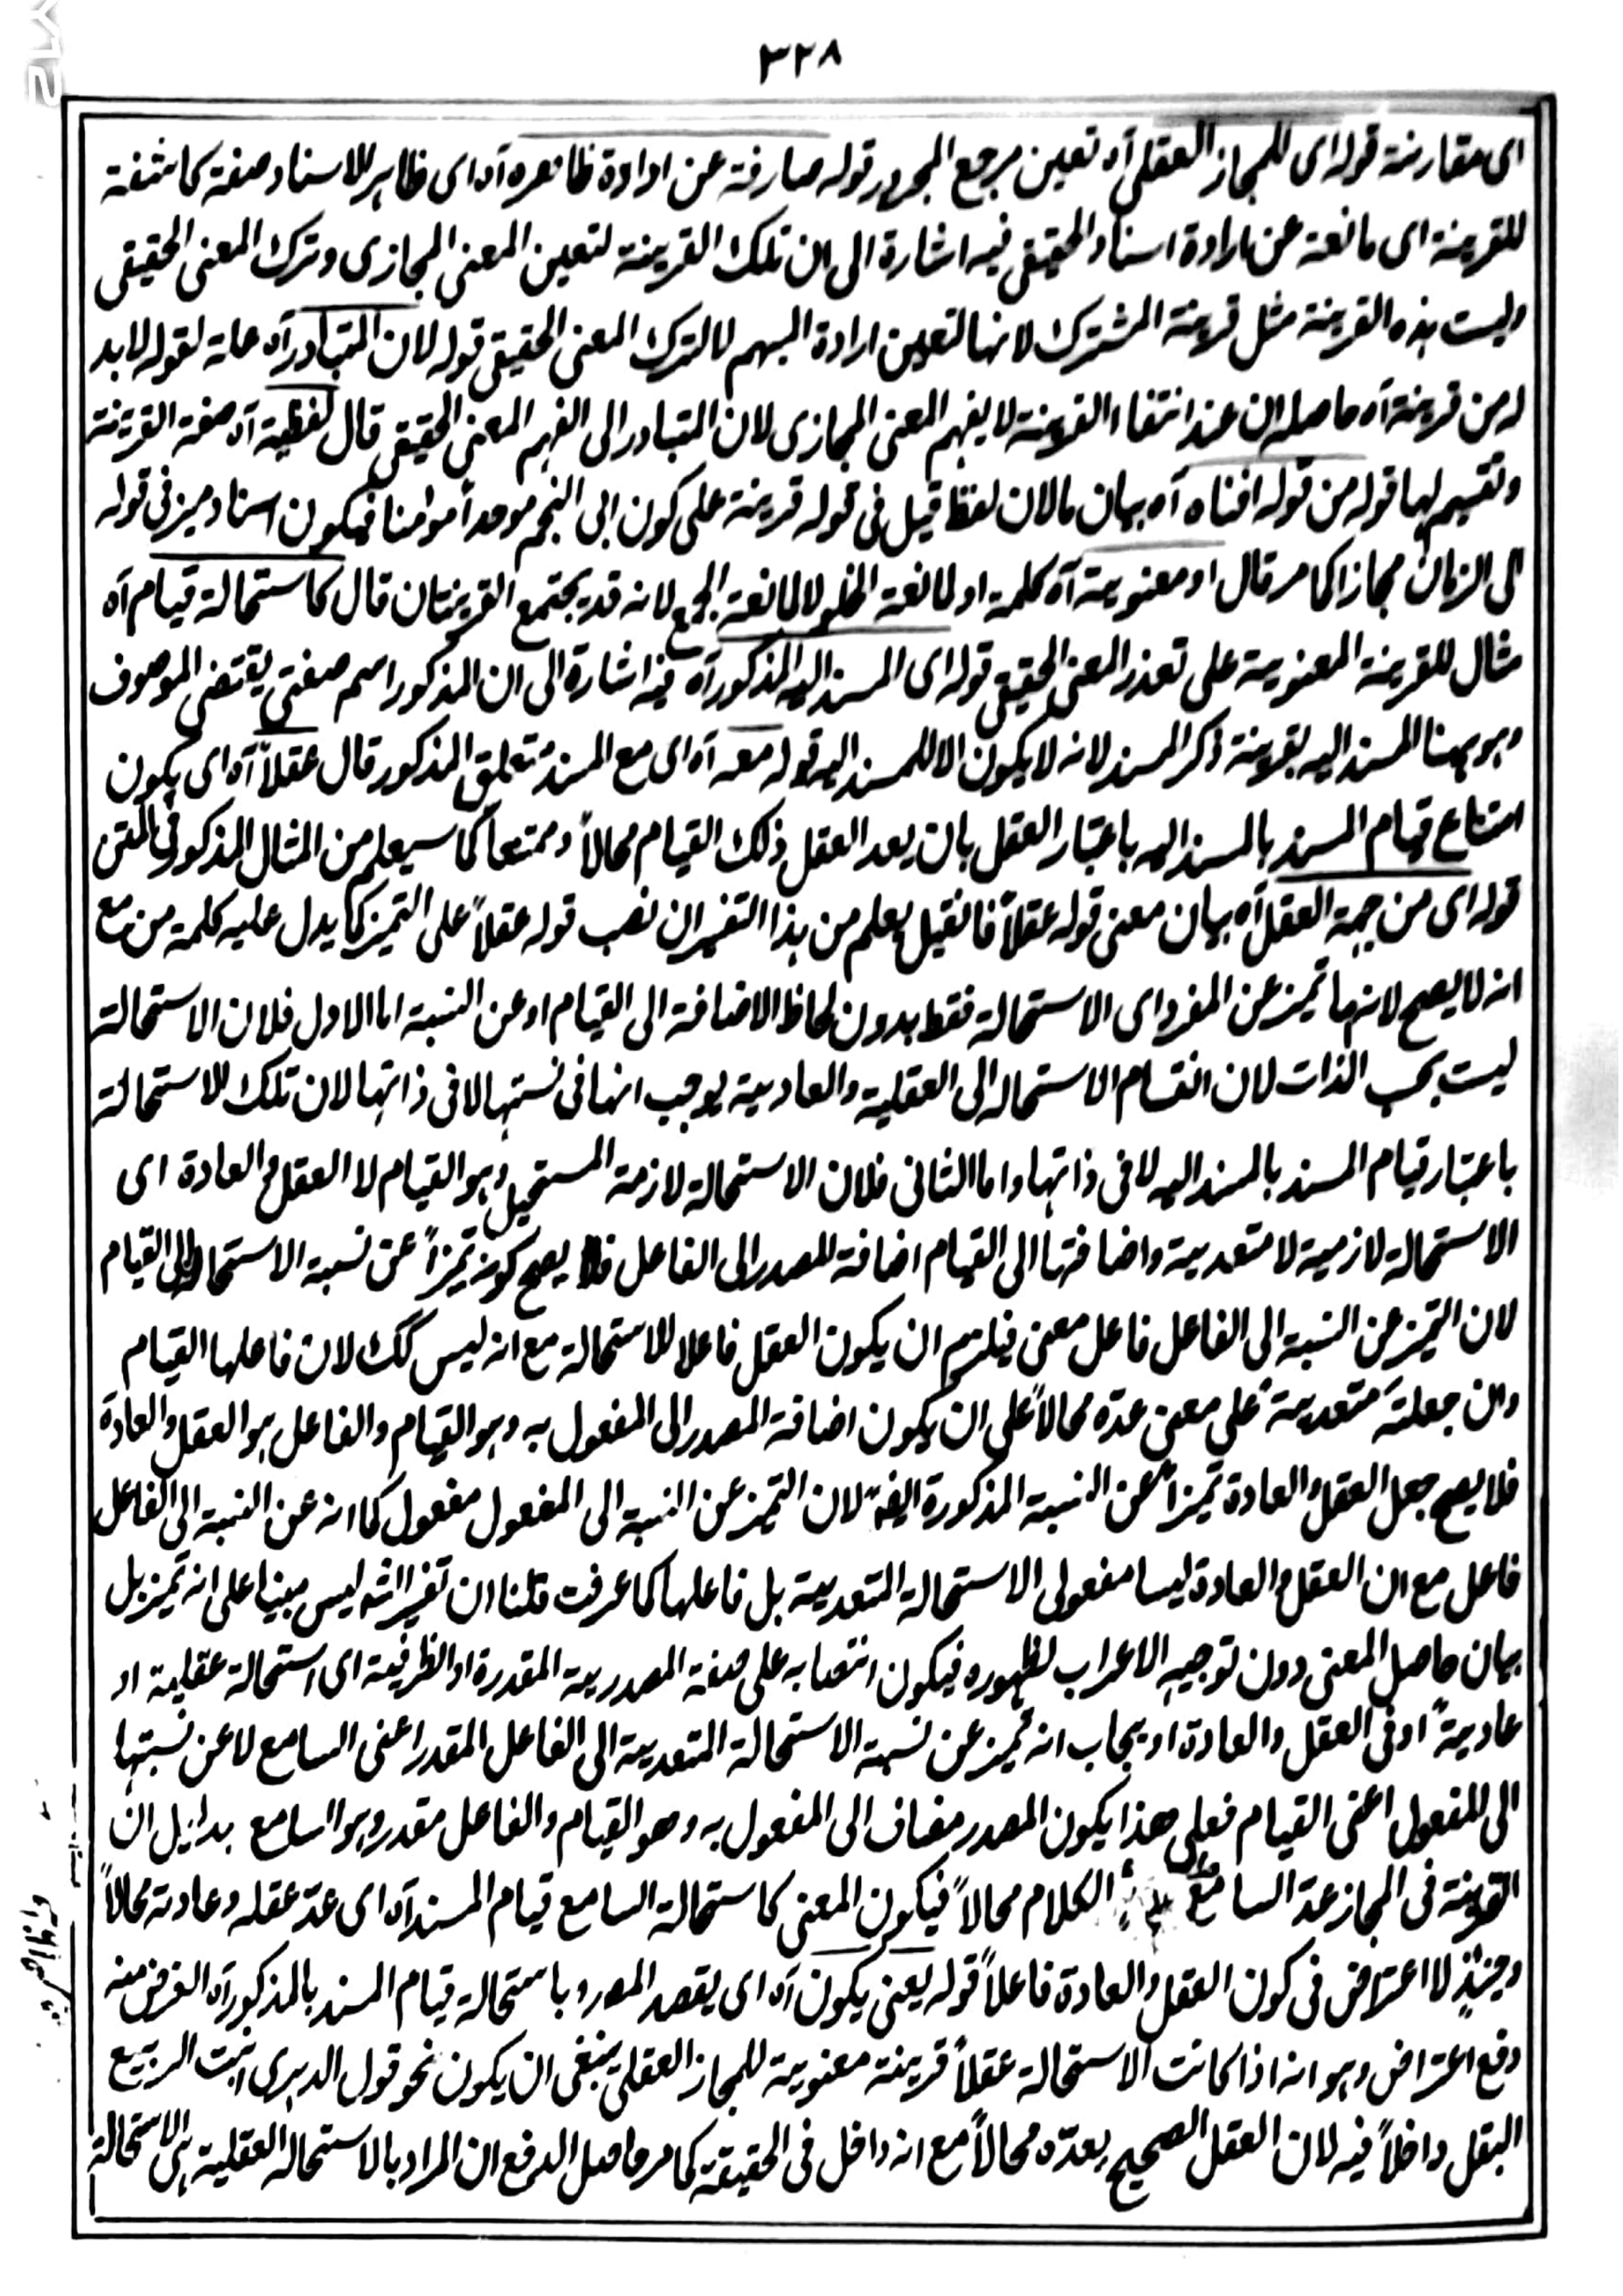 ٣٢٨
ای مقارنة قوله ای للمجاز العقلی آه تعین مرجع المجرور قوله صارفة عن ارادة ظاهره آه ای ظاهر الاسناد صفة كاشفة
للقرینة ای مانعة عن ارادة اسناد الحقیقی فیه اشارة الی ان تلك القرینة لتعین المعنی المجازی وترك المعنی الحقیقی
ولیست هذه القرینة مثل قرینة المشترك لانها لتعین ارادة المبهم لا لترك المعنی الحقیقی قوله لان المتبادر آه علة لقوله لابد
له من قرینة آه حاصله ان عند انتفاء القرینة لا یفهم المعنی المجازی لان المتبادر الی الفهم المعنی الحقیقی قال لفظیة آه صفة القرینة
وتقسیم لها قوله من قوله افناه آه بیان ما لان لفظ قیل فی قوله قرینة علی كون ابی النجم موحدا مؤمنا فیكون اسناد میز فی قوله
الی الزمان مجازا كما مر قال او معنویة آه كلمة او لمانعة الخلو لا لمانعة الجمع لانه قد یجتمع القرینتان قال كاستحالة قیام آه
مثال للقرینة المعنویة علی تعذر المعنی الحقیقی قوله ای المسند الیه المذكور آه فیه اشارة الی ان المذكور اسم صفتی یقتضی الموصوف
وهو ههنا المسند الیه بقرینة ذكر المسند لانه لا یكون الا للمسند الیه قوله معه آه ای مع المسند متعلق المذكور قال عقلاً آه ای یكون
امتناع قیام المسند بالمسند الیه باعتبار العقل بان یعد العقل ذلك القیام محالاً وممتنعا كما سیعلم من المثال المذكور فی المتن
قوله ای من جهة العقل آه بیان معنی قوله عقلاً فانقیل یعلم من هذا التفسیر ان نصب قوله عقلاً علی التمیز كما یدل علیه كلمة من مع
انه لا یصح لانها تمیز عن المفرد ای الاستحالة فقط بدون لحاظ الاضافة الی القیام او عن النسبة اما الاول فلان الاستحالة
لیست بحسب الذات لان انقسام الاستحاله الی العقلیة والعادیة یوجب انها فی نسبتها لا فی ذاتها لان تلك الاستحالة
باعتبار قیام المسند بالمسند الیه لا فی ذاتها واما الثانی فلان الاستحالة لازمة المستحیل وهو القیام لا العقل والعادة ای
الاستحالة لازمیة لا متعدیة واضافتها الی القیام اضافة للمصدر الی الفاعل فلا یصح كونه تمیزاً عن نسبة الاستحالة الی القیام
لان التمیز عن النسبة الی الفاعل فاعل معنی فیلزم ان یكون العقل فاعلا للاستحالة مع انه لیس كك لان فاعلها القیام
وان جعلت متعدیة علی معنی عدّه محالاً علی ان یكون اضافة المصدر الی المفعول به وهو القیام والفاعل هو العقل والعادة
فلا یصح جعل العقل والعادة تمیزاً عن النسبة المذكورة ایضا لان التمیز عن النسبة الی المفعول مفعول كما انه عن النسبة الی الفاعل
فاعل مع ان العقل والعادة لیسا مفعولی الاستحالة المتعدیة بل فاعلها كما عرفت قلنا ان تفسیر الش لیس مبنیا علی انه تمیز بل
بیان حاصل المعنی دون توجیه الاعراب لظهوره فیكون انتصابه علی صفة المصدریة المقدرة او الظرفیة ای استحالة عقلیة او
عادیة او فی العقل والعادة او یجاب انه تمیز عن نسبة الاستحالة المتعدیة الی الفاعل المقدر اعنی السامع لا عن نسبتها
الی المفعول اعنی القیام فعلی هذا یكون المصدر مضاف الی المفعول به وهو القیام والفاعل مقدر وهو السامع بدلیل ان
القرینة فی المجاز عدّ السامع الكلام محالاً فیكون المعنی كاستحالة السامع قیام المسند آه ای عدّ عقله وعادته محالاً
وحینئذٍ لا اعتراض فی كون العقل والعادة فاعلاً قوله یعنی یكون آه ای یقصد المصـ باستحالة قیام المسند بالمذكور آه الغرض منه
دفع اعتراض وهو انه اذا كانت الاستحالة عقلاً قرینة معنویة للمجاز العقلی ینبغی ان یكون نحو قول الدهری انبت الربیع
البقل داخلاً فیه لان العقل الصحیح یعدّه محالاً مع انه داخل فی الحقیقة كما مر حاصل الدفع ان المراد بالاستحاله العقلیة هی الاستحالة